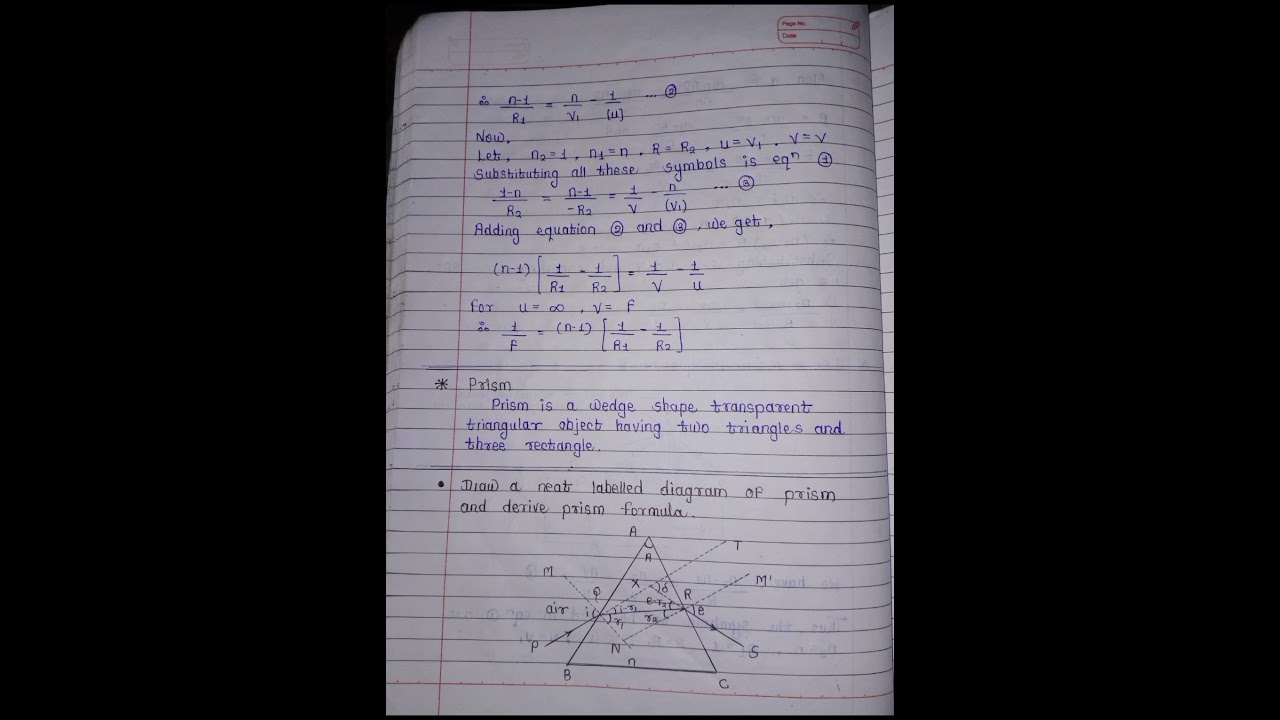 Page No.
Date
∴ n-1/R1 = n/V1 - 1/(u) ... ②
Now,
Let, n2=1, n1=n, R=R2, u=V1, V=V
Substituting all these symbols is eqn ①
1-n/R2 = n-1/-R2 = 1/V - n/(V1) ... ③
Adding equation ② and ③, we get,
(n-1) [1/R1 - 1/R2] = 1/V - 1/u
For u=∞, V=F
∴ 1/F = (n-1) [1/R1 - 1/R2]
* Prism
Prism is a wedge shape transparent
triangular object having two triangles and
three rectangle.
• Draw a neat labelled diagram of prism
and derive prism formula.
A
T
A
M
X δ M'
R
air i i-r1 e-r2 e
r1 r2
P N S
n
B C